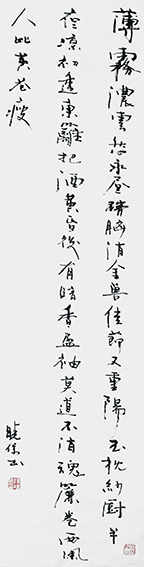 薄霧濃雲愁永昼瑞腦消金兽佳節又重陽玉枕紗厨半
夜涼初透東籬把酒黄昏後有暗香盈袖莫道不消魂簾卷西風
人比黄花瘦